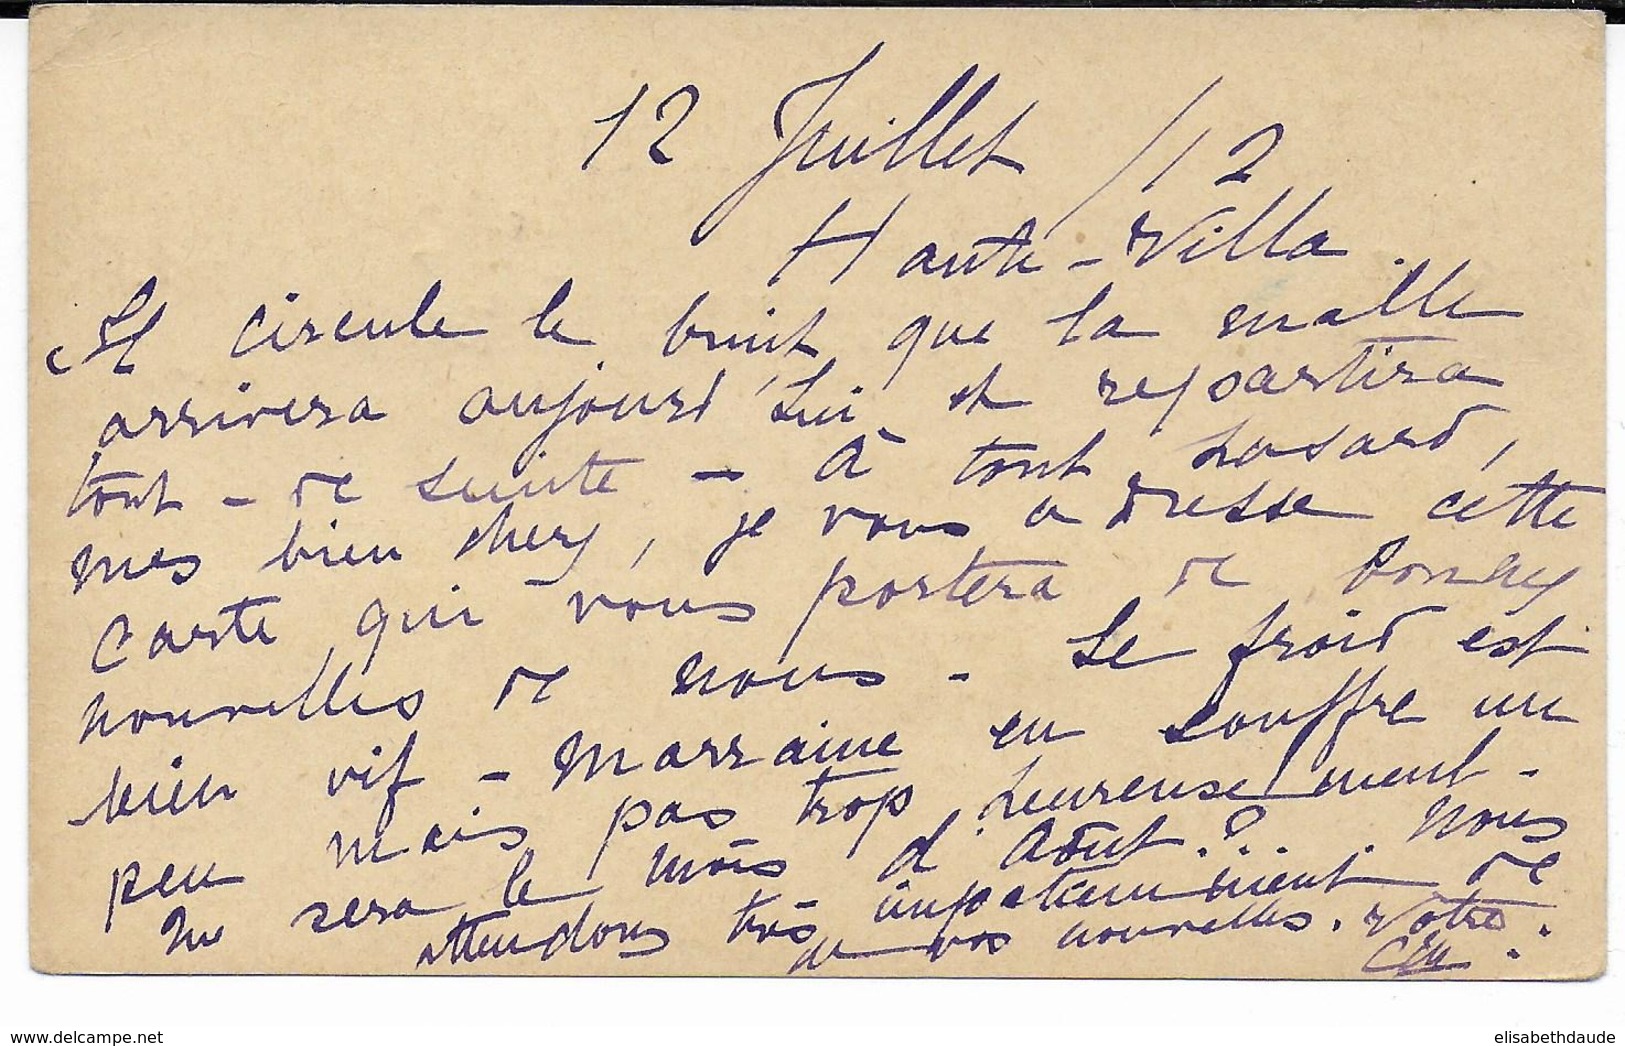 12 Juillet /12
Haute-Villa.
Il circule le bruit que la malle
arrivera aujourd'hui et repartira
tout-de suite - à tout hasard,
mes bien chers, je vous adresse cette
carte qui vous portera de bonnes
nouvelles de nous - Le froid est
bien vif - Marraine en souffre un
peu mais pas trop heureusement -
sera le mois d'Août ? ... Nous
attendons très impatiemment de
de vos nouvelles. Votre
delcampe.net
elisabethdaude